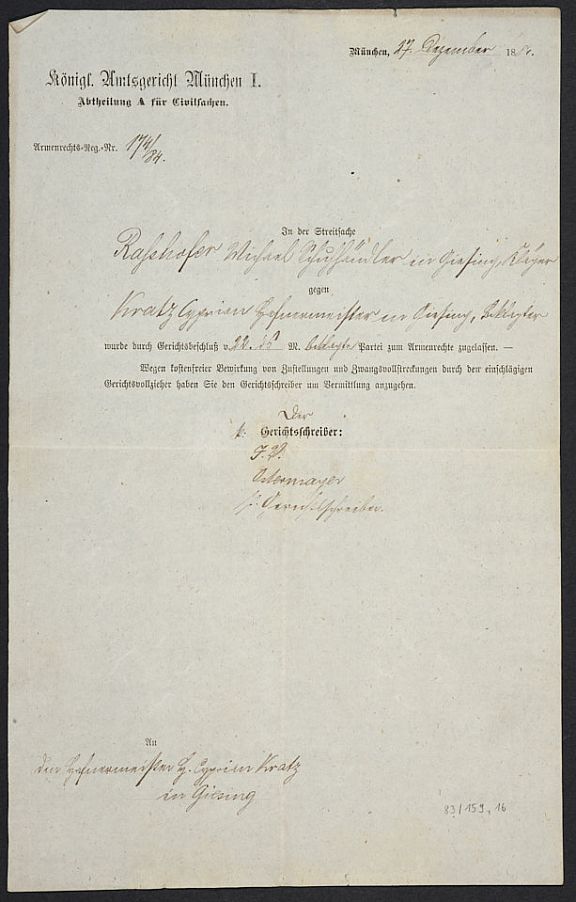 München, 27. Dezember 188
Königl. Amtsgericht München I.
Abtheilung A für Civilsachen.
Armenrechts-Reg.-Nr. 174/84.
In der Streitsache
Rasshofer Michael Schuhhändler in Giesing, Kläger
gegen
Kratz Cyprian Hafnermeister in Giesing, Beklagter
wurde durch Gerichtsbeschluß v. 22. ds M. beklagte Partei zum Armenrechte zugelassen. —
Wegen kostenfreier Bewirkung von Zustellungen und Zwangsvollstreckungen durch den einschlägigen
Gerichtsvollzieher haben Sie den Gerichtsschreiber um Vermittlung anzugehen.
Der
k. Gerichtsschreiber:
I. V.
Ostermayer
Gerichtsschreiber.
An
den Hafnermeister H. Cyprian Kratz
in Giesing
83/159, 16